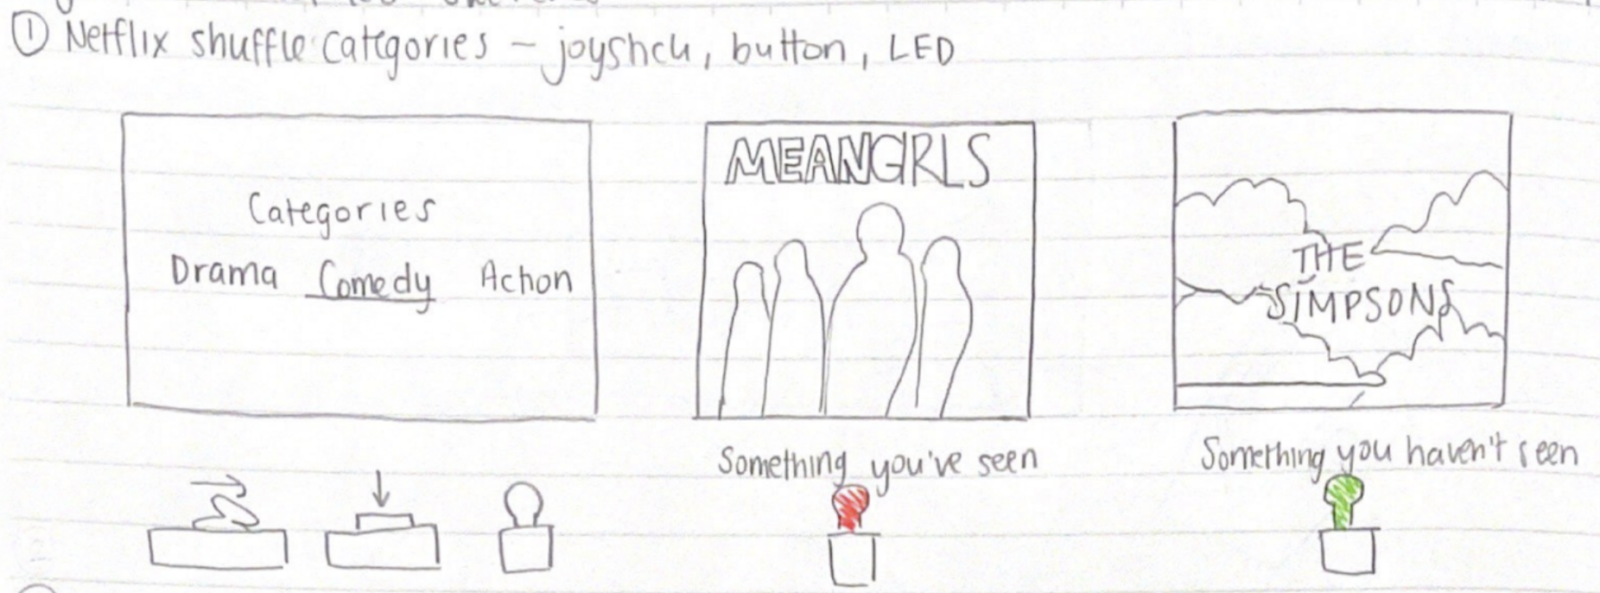 ① Netflix shuffle categories – joystick, button, LED
Categories
Drama Comedy Action
MEANGRLS
Something you've seen
THE
SIMPSONS
Something you haven't seen